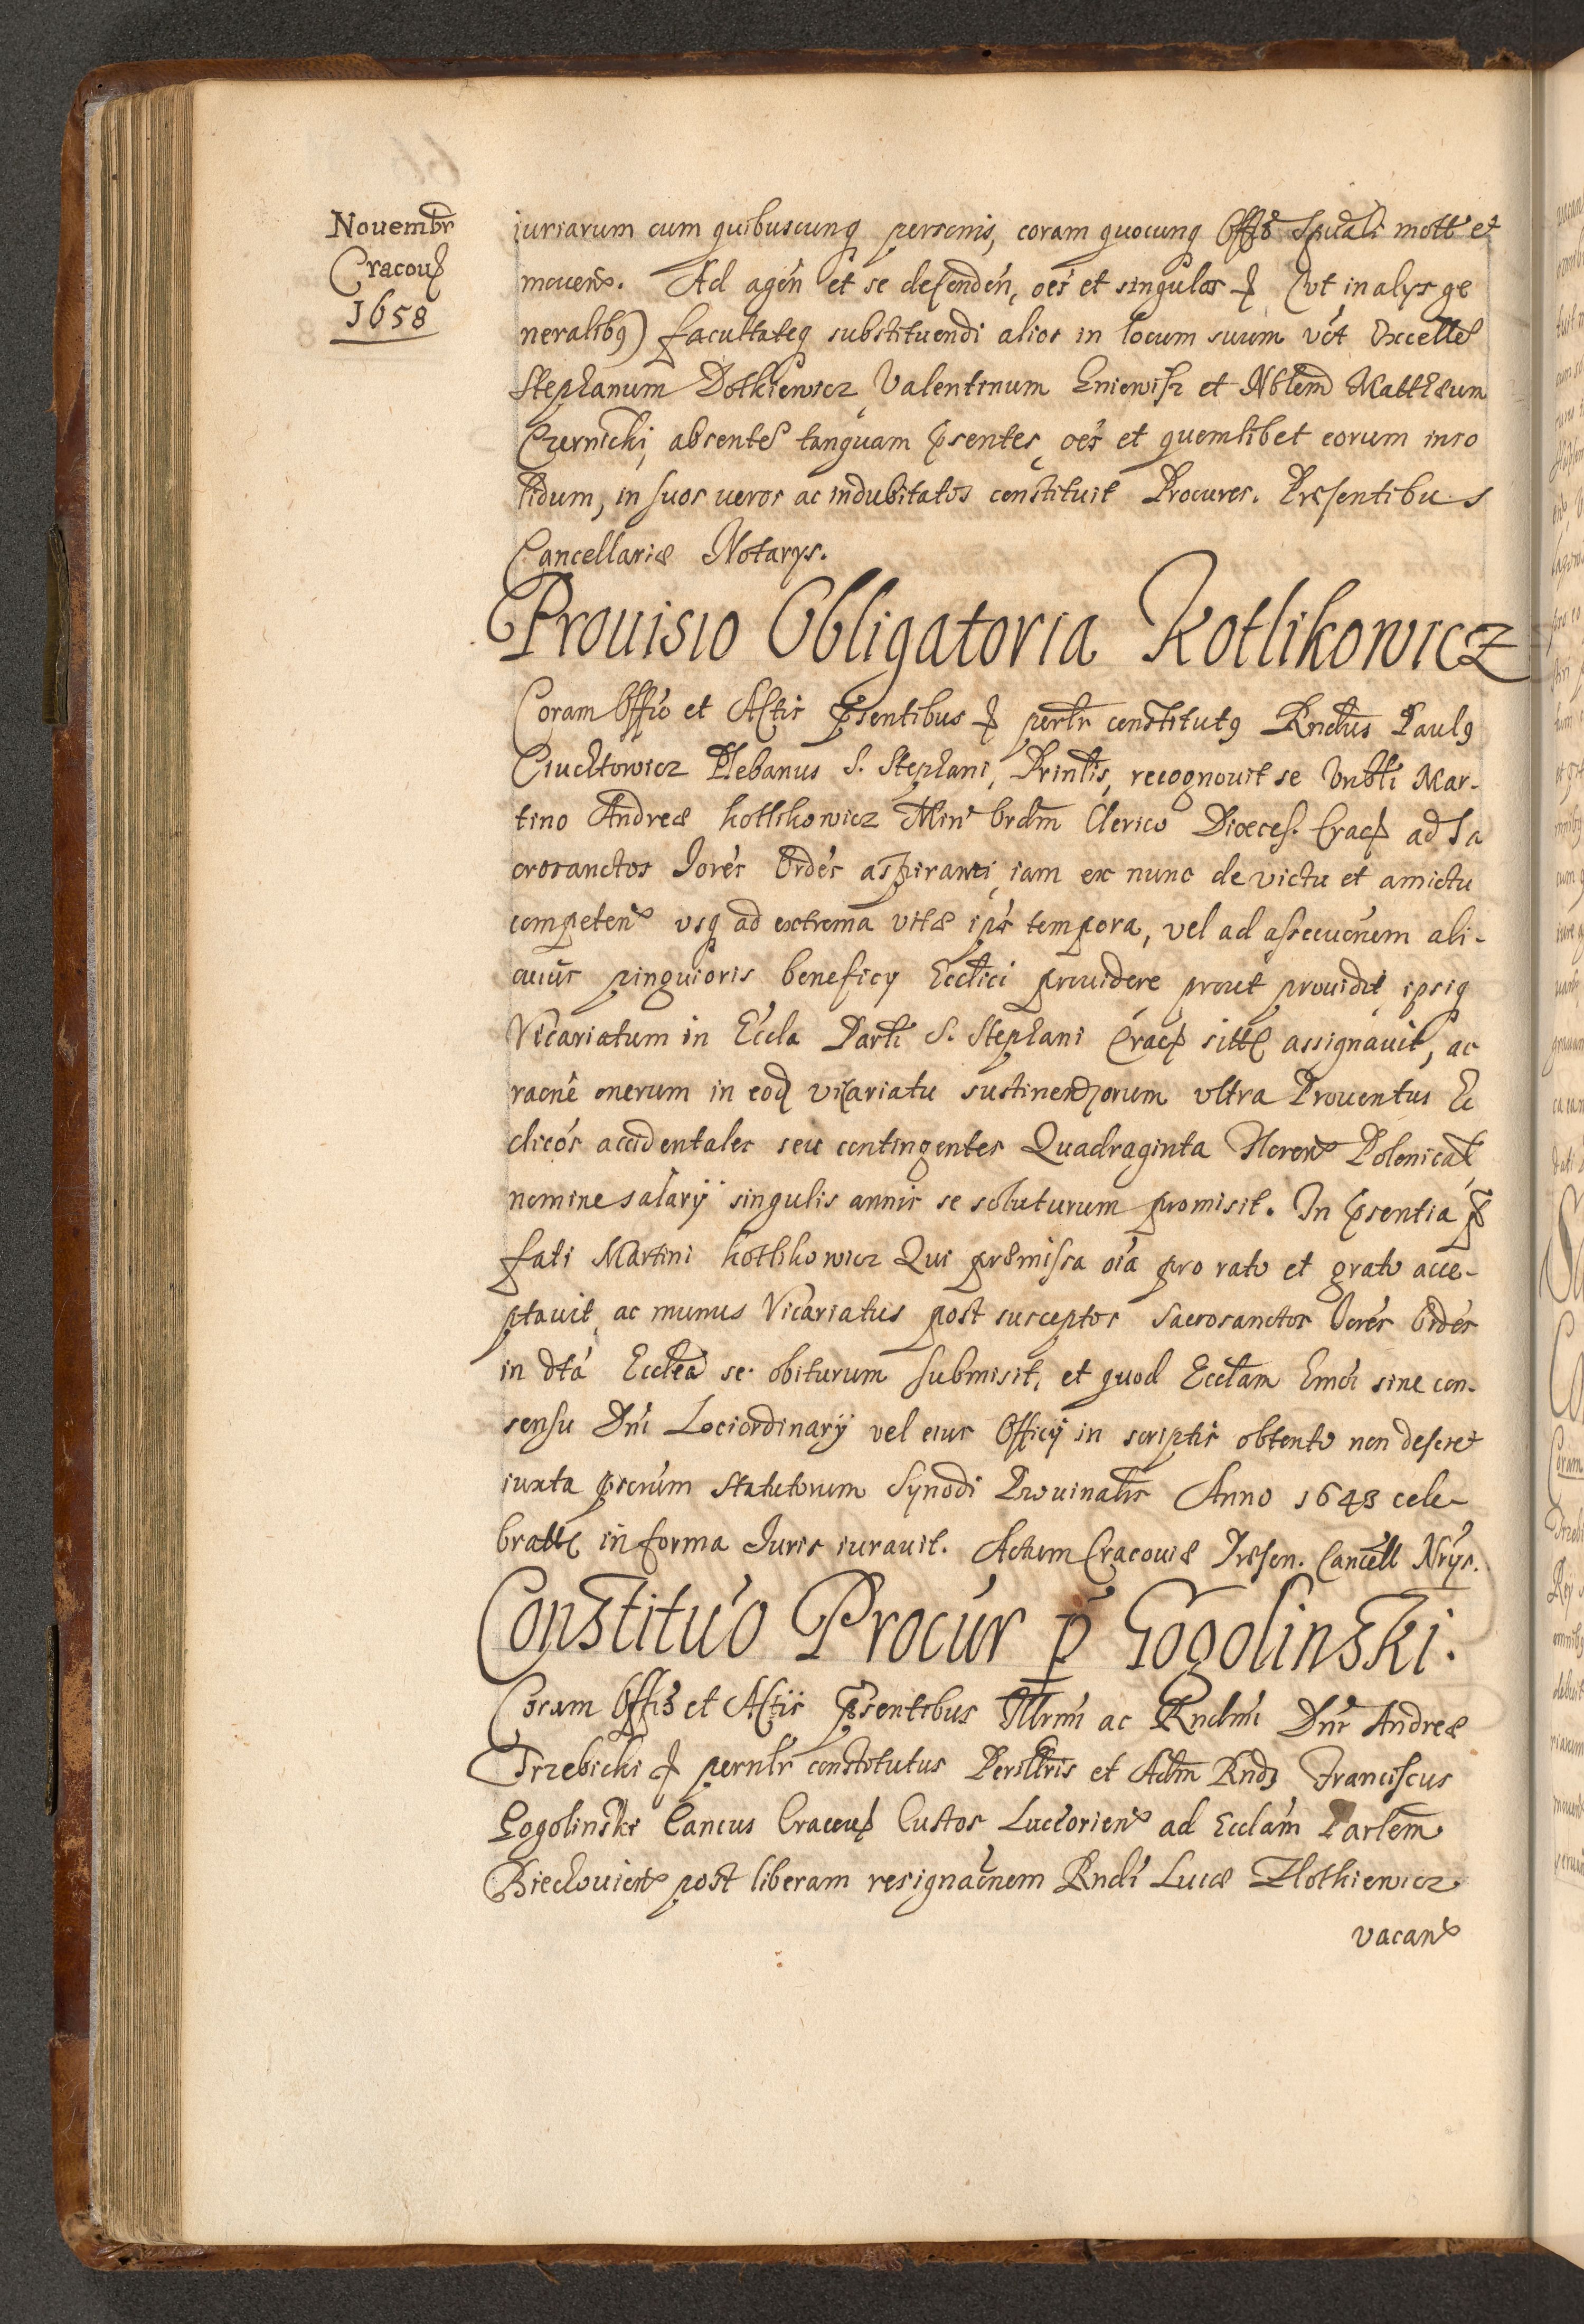 Nouembr
Cracou
1658
iuriarum cum quibuscunq personis, coram quocunq Offo Spuali mott et
mouen. Ad agen et se defenden, oes et singulas (vt in alys ge
neralibq) facultateq substituendi alios in locum suum vct Excelle
Stephanum Dotkiewicz Valentinum Gniewisz et Nblem Matthæum
Czernicki, absente tanquam psentes, oes et quemlibet eorum inso
lidum, in suos ueros ac indubitatos constituit Procures. Præsentibus
Cancellariæ Notarys.
Prouisio Obligatoria Kotlikowicz
Coram Offio et Actis psentibus perlr constitutq Rndus Paulq
Ciuchtowicz Plebanus S. Stephani, Prinlis, recognouit se Vnbli Mar-
tino Andreæ Kotlikowicz Min Ordm Clerico Diæces. Crac ad Sa
crosanctos Iores Ordes aspiranti, iam ex nunc de victu et amictu
competen vsq ad extrema vitæ ips tempora, vel ad assecuonem ali-
cuius pinguioris beneficy Ecclici prouidere prout prouidit ipsiq
Vicariatum in Eccla Parli S. Stephani Crac sitt assignauit, ac
raone onerum in eod vicariatu sustinendorum vltra Prouentus Ec
clicos accidentales seu contingentes Quadraginta Floren Polonical
nomine salarij singulis annis se soluturum promisit. In psentia p
fati Martini Kotlikowicz Qui præmissa oia pro rato et grato acce-
ptauit, ac munus Vicariatus post susceptos Sacrosanctos Iores Ordes
in dta Ecclea se obiturum submisit, et quod Ecclam Emdi sine con-
sensu Dni Lociordinarij vel eius Officij in scriptis obtento non deseret
iuxta pscrum statutorum Synodi Prouinalis Anno 1643 cele-
bratt in forma Iuris iurauit. Actum Cracouiæ Præsen. Cancell Nrys.
Constituo Procur p Gogolinski.
Coram Offio et Actis psentibus Illrmi ac Rndmi Dni Andreæ
Trzebicki pernlr constitutus Perillris et Adm Rnd Franciscus
Gogolinski Cancus Cracou Custos Luceorien ad Ecclam Parlem
Biechouien post liberam resignacnem Rndi Lucæ Zlothiewicz
vacan